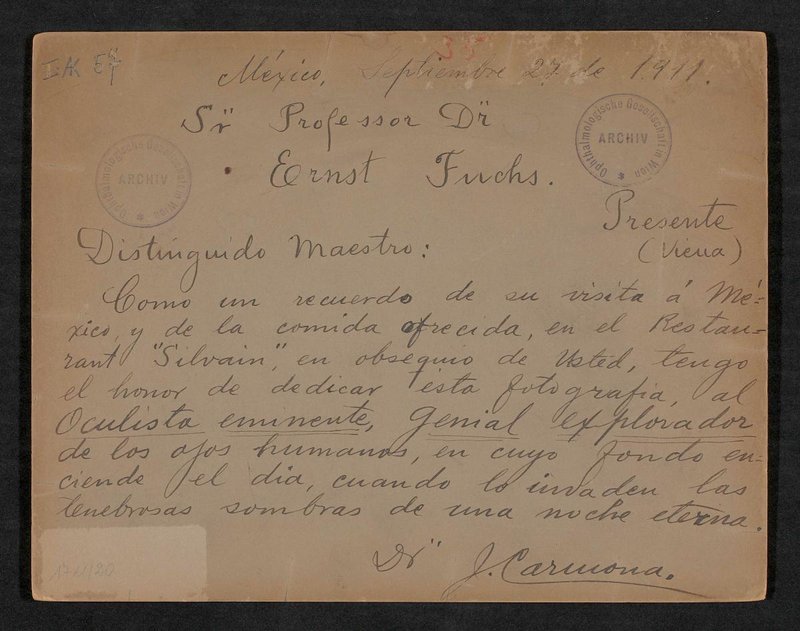 México, Septiembre 27 de 1911.
Sr̈ Professor Dr̈
Ernst Fuchs.
Presente
(Viena)
Distinguido Maestro:
Como un recuerdo de su visita á Mé-
xico, y de la comida ofrecida, en el Restau-
rant "Silvain", en obsequio de Usted, tengo
el honor de dedicar esta fotografia, al
Oculista eminente, genial explorador
de los ojos humanos, en cuyo fondo en-
ciende el dia, cuando lo invaden las
tenebrosas sombras de una noche eterna.
Dr̈ J. Carmona.
Ophthalmologische Gesellschaft in Wien
ARCHIV
Ophthalmologische Gesellschaft in Wien
ARCHIV
35